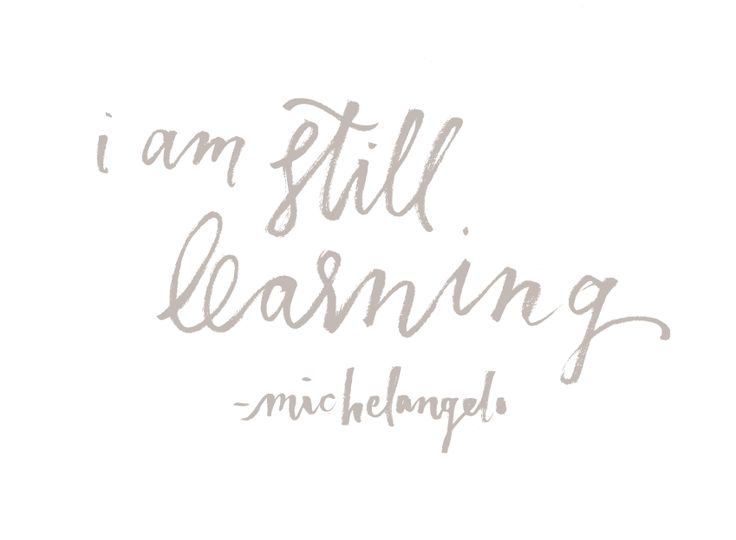 i am still
learning
-michelangelo